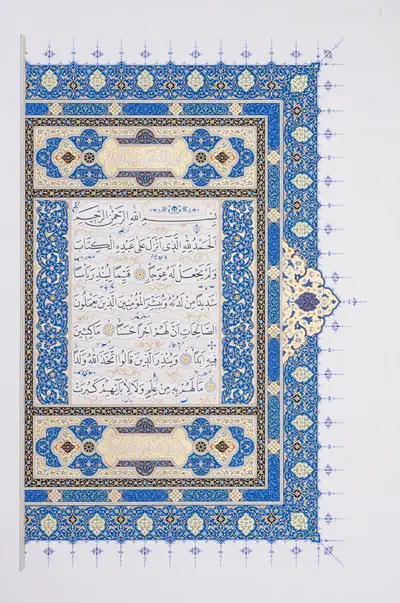 بِسْمِ اللهِ الرَّحْمٰنِ الرَّحِيمِ
اَلْحَمْدُ لِلّٰهِ الَّذِي اَنْزَلَ عَلٰى عَبْدِهِ الْكِتَابَ
وَلَمْ يَجْعَلْ لَهُ عِوَجًا ۝ قَيِّمًا لِيُنْذِرَ بَأْسًا
شَدِيدًا مِنْ لَدُنْهُ وَيُبَشِّرَ الْمُؤْمِنِينَ الَّذِينَ يَعْمَلُونَ
الصَّالِحَاتِ اَنَّ لَهُمْ اَجْرًا حَسَنًا ۝ مَاكِثِينَ
فِيهِ اَبَدًا ۝ وَيُنْذِرَ الَّذِينَ قَالُوا اتَّخَذَ اللهُ وَلَدًا
۝ مَا لَهُمْ بِهِ مِنْ عِلْمٍ وَلَا لِاٰبَائِهِمْ كَبُرَتْ